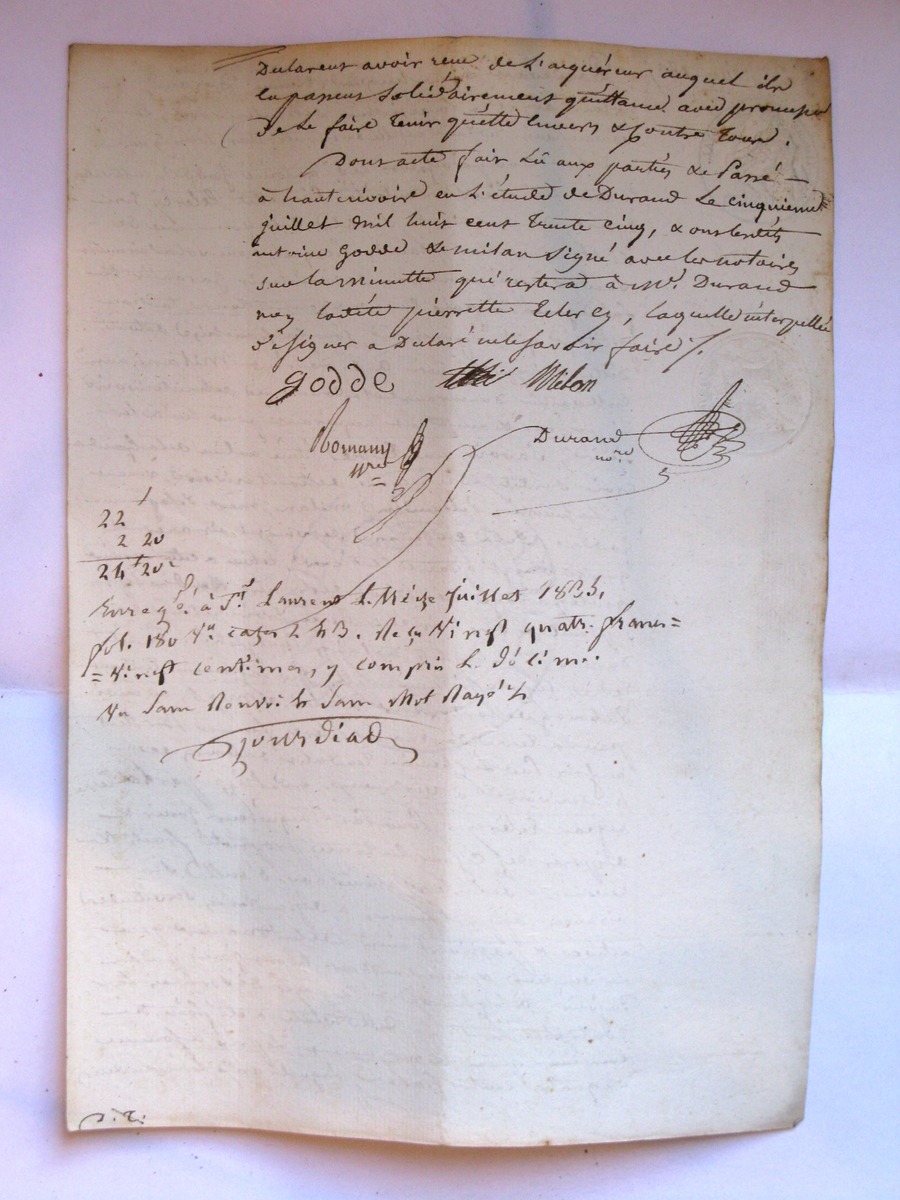 Declarent avoir reçu de L'acquéreur auquel ils
en passent solidairement quittance avec promesse
de Le faire tenir quitte Envers & Contre Tous.
Dont acte fait Lû aux parties & Passé
à hauterivoire en L'étude de Durand Le cinquieme
juillet mil huit cent trente cinq, & ont lesdits
antoine godde & milan signé avec les notaires
sur la minutte qui restera à Me. Durand
non ladite pierrette Leclercq, laquelle interpellée
de signer a Declaré ne le savoir faire ./.
godde Milon
Romany
nre
Durand
nore
22
2 20
24 f 20 c
Enregé. à St Laurent L. treize juillet 1835,
fol. 180 Vo. cazes 2 & 3. Reçu Vingt quatre francs =
= Vingt centimes, y compris L. décime.
Vu sans Renvoi & sans Mot Rayé
Gourdiad